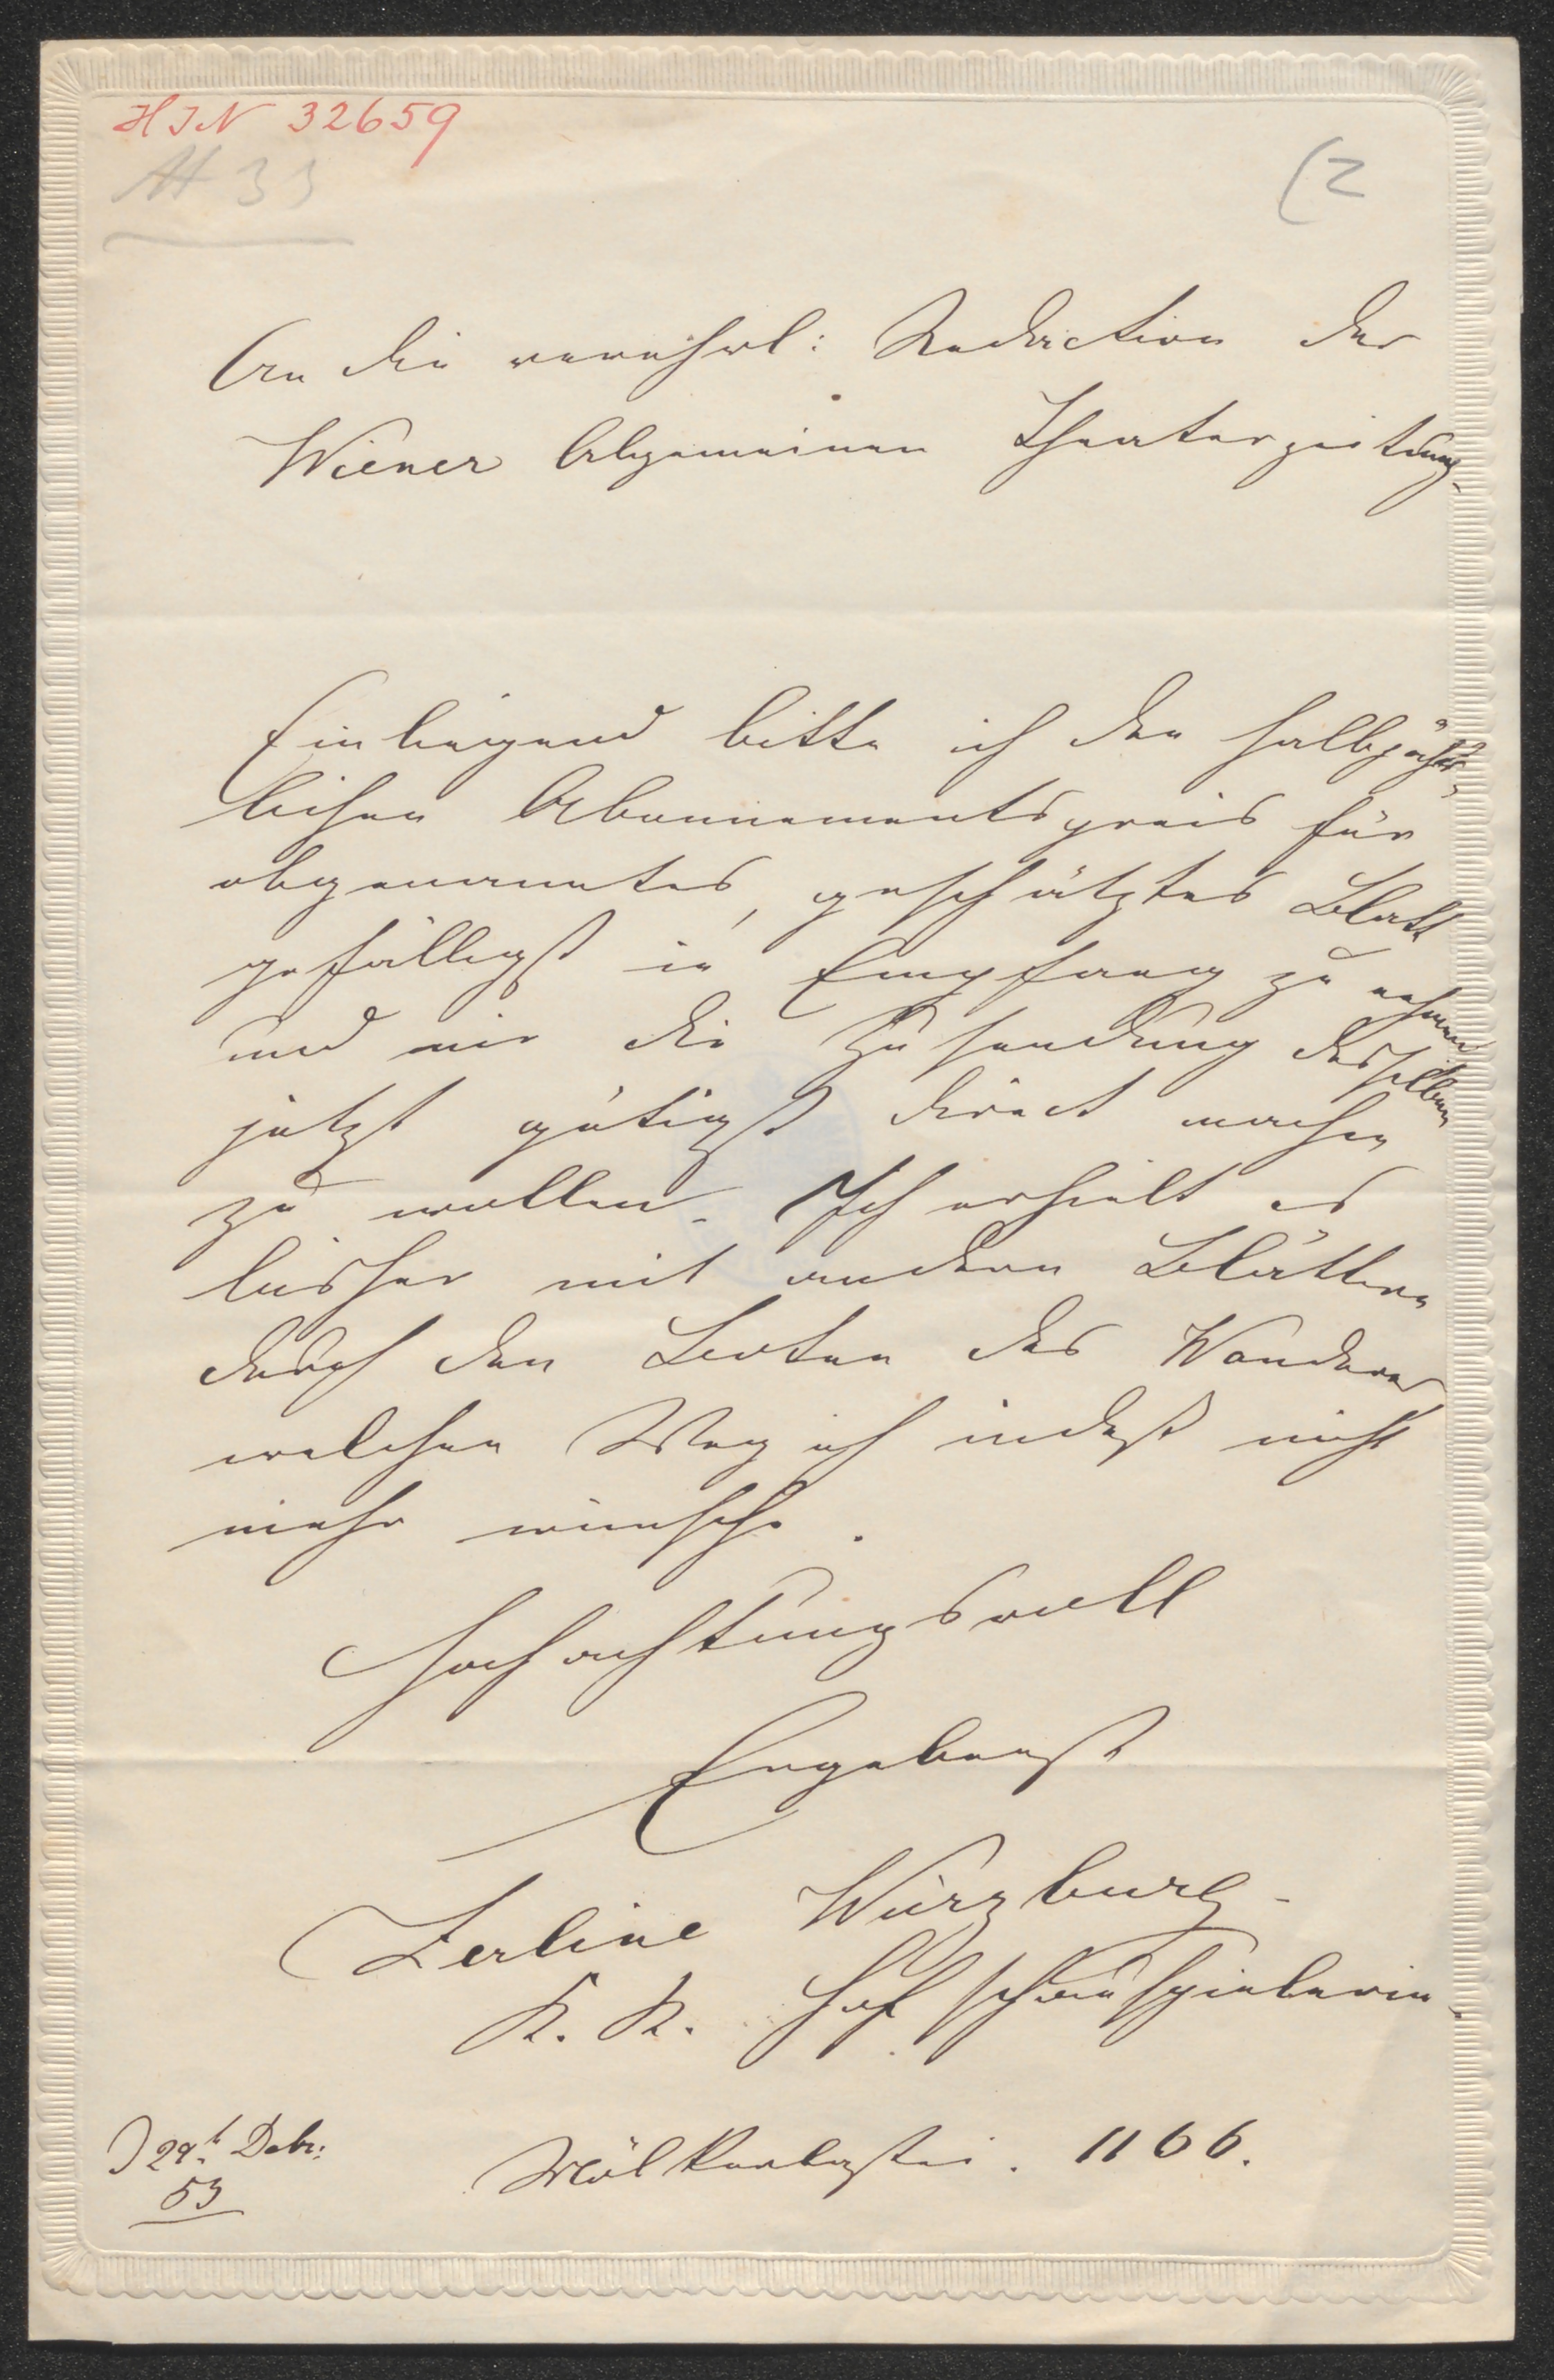 HIN 32659
A 33
(2
An die verehrl: Redaction der
Wiener Allgemeinen Theaterzeitung.
Einliegend bitte ich den halbjähr-
lichen Abonnementspreis für
obgenanntes, geschätztes Blatt
gefälligst in Empfang zu nehmen
und mir die Zusendung desselben
jetzt gütigst direct machen
zu wollen. Ich erhielt es
bisher mit andern Blättern
durch den Boten des Wanderer
welchen Weg ich indeß nicht
mehr wünsche.
Hochachtungsvoll
Ergebenst
Zerline Würzburg.
K. K. Hofschauspielerin.
29t Debr:
53
Mölkerbastei. 1166.